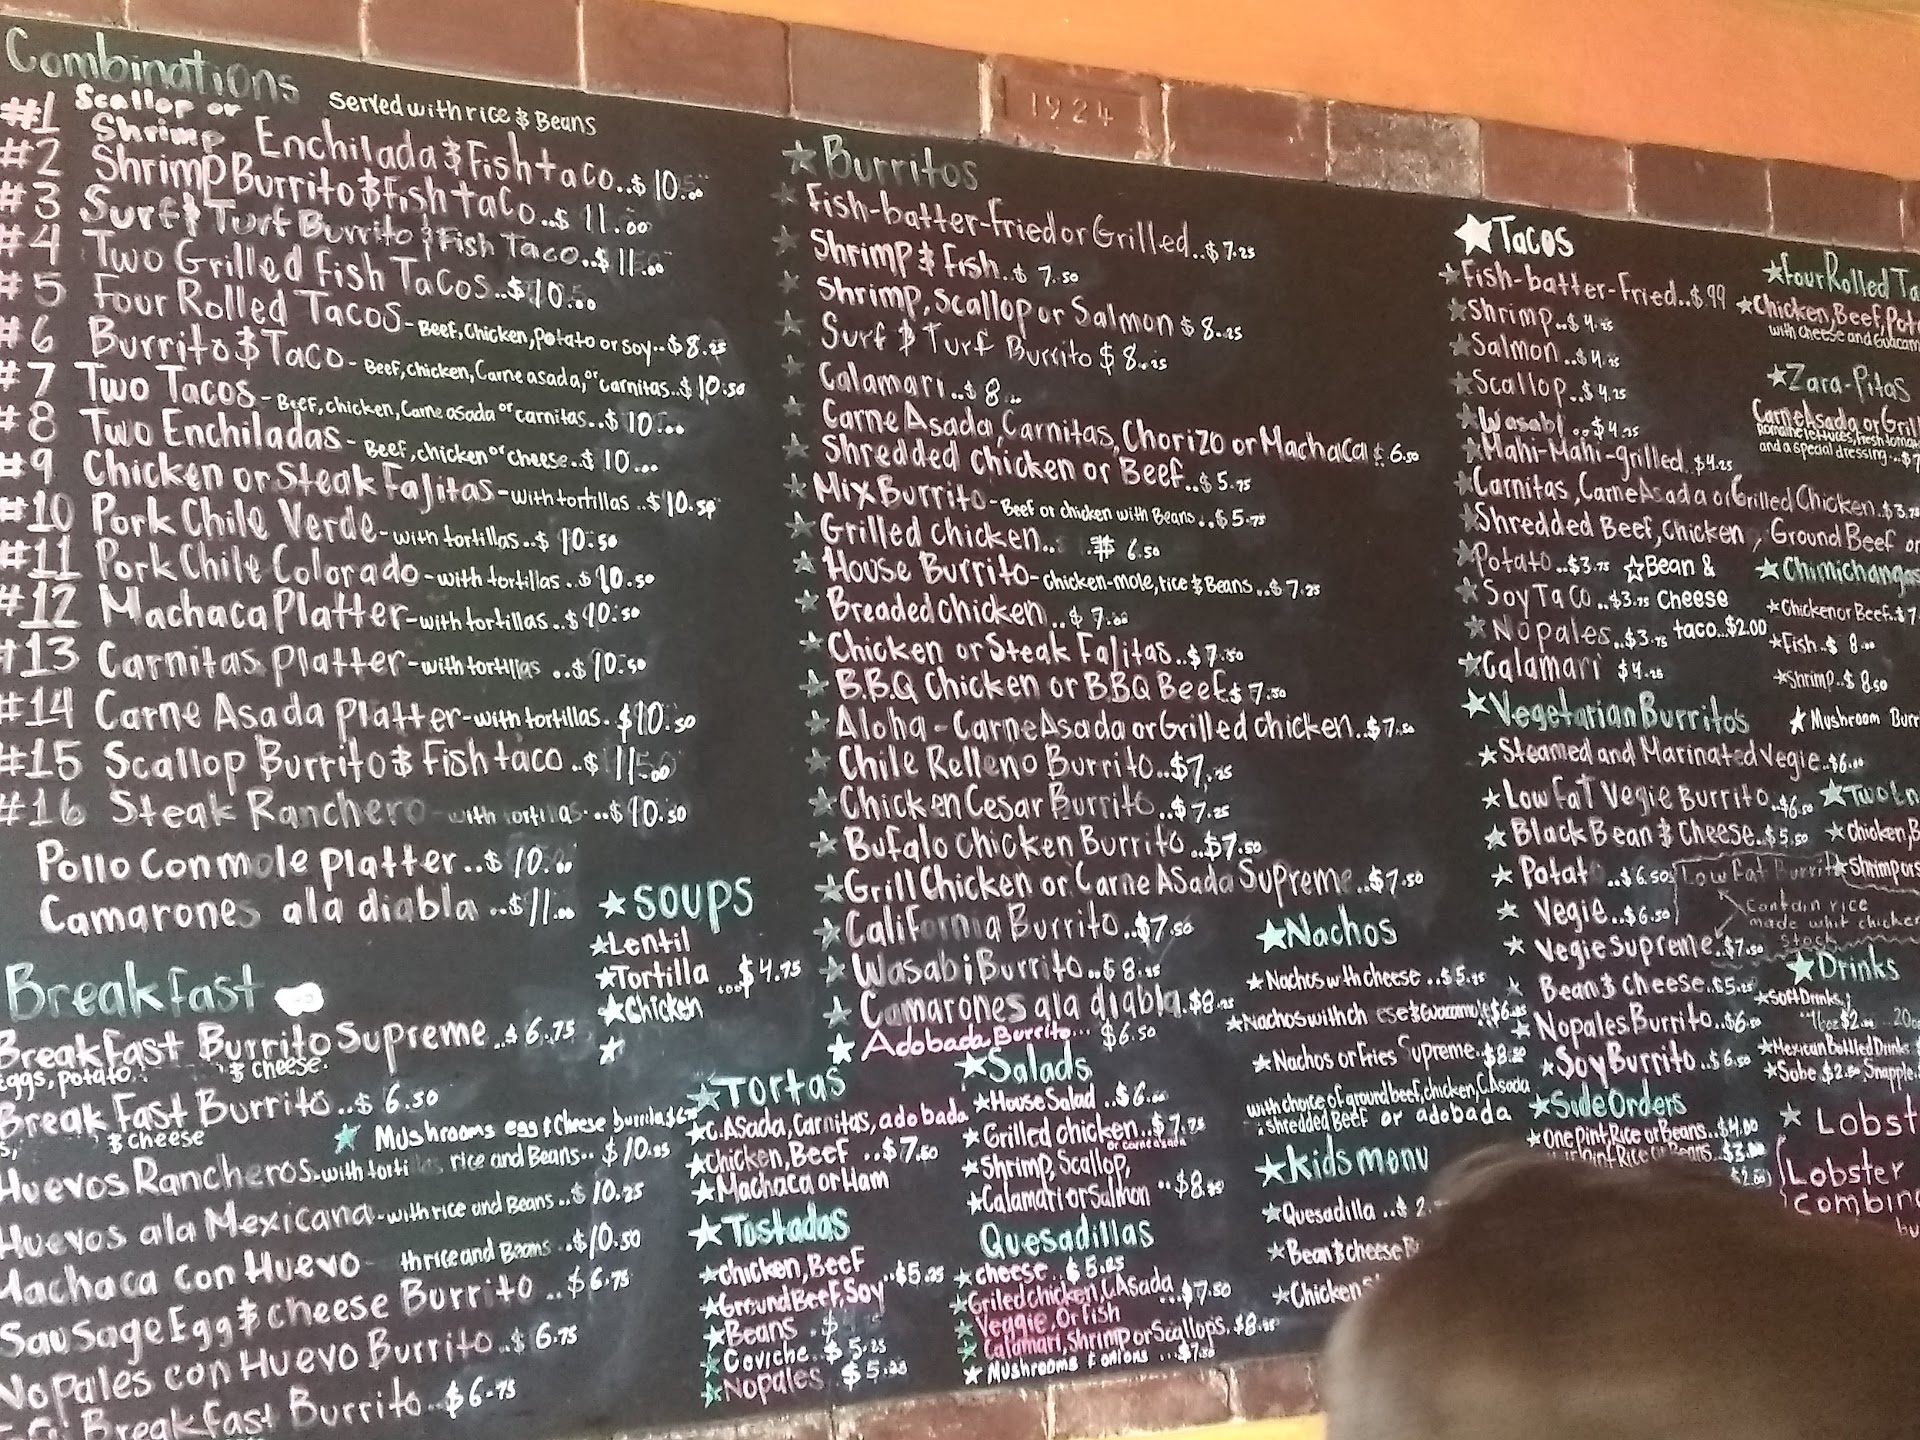 1924
Combinations
served with rice & Beans
#1 Scallop or Shrimp Enchilada & Fish taco..$10.
#2 Shrimp Burrito & Fish taco..$ 11.00
#3 Surf & Turf Burrito & Fish Taco..$11.00
#4 Two Grilled Fish Tacos..$10.00
#5 Four Rolled Tacos-Beef, Chicken, Potato or Soy..$8.25
#6 Burrito & Taco-Beef, chicken, Carne asada, or carnitas..$10.50
#7 Two Tacos-Beef, chicken, Carne asada or carnitas..$10.00
#8 Two Enchiladas-Beef, chicken or cheese..$10.00
#9 Chicken or Steak Fajitas-with tortillas..$10.50
#10 Pork Chile Verde-with tortillas..$10.50
#11 Pork Chile Colorado-with tortillas..$10.50
#12 Machaca Platter-with tortillas..$10.50
#13 Carnitas Platter-with tortillas..$10.50
#14 Carne Asada Platter-with tortillas. $10.50
#15 Scallop Burrito & Fish taco..$11.00
#16 Steak Ranchero-with tortillas...$10.50
Pollo Con mole platter..$10.00
Camarones ala diabla..$11.00
Breakfast
Breakfast Burrito Supreme..$6.75
Eggs, potato & cheese.
Breakfast Burrito..$6.50
& cheese
Mushrooms egg & Cheese burrito
Huevos Rancheros-with rice and Beans..$10.25
Huevos ala Mexicana-with rice and Beans..$10.25
Machaca con Huevo rice and Beans..$10.50
Sausage Egg & cheese Burrito..$6.75
Nopales con Huevo Burrito..$6.75
Breakfast Burrito..$6.75
Soups
Lentil
Tortilla ...$4.75
Chicken
Burritos
Fish-batter-Fried or Grilled..$7.25
Shrimp & Fish..$ 7.50
Shrimp, scallop or Salmon $8.25
Surf & Turf Burrito $8.25
Calamari..$8
Carne Asada, Carnitas, Chorizo or Machaca $6.50
Shredded chicken or Beef..$5.75
Mix Burrito-Beef or chicken with Beans..$5.75
Grilled chicken.. $6.50
House Burrito-chicken-mole, rice & Beans..$7.25
Breaded chicken..$7.00
Chicken or Steak Fajitas..$7.50
B.B.Q Chicken or BBQ Beef $7.50
Aloha-Carne Asada or Grilled chicken..$7.50
Chile Relleno Burrito..$7.25
Chicken Cesar Burrito..$7.25
Bufalo Chicken Burrito..$7.50
Grill Chicken or Carne Asada Supreme..$7.50
California Burrito..$7.50
Wasabi Burrito..$8.25
Camarones ala diabla.$8.25
Adobada Burrito... $6.50
Tortas
C.Asada, Carnitas, adobada
Chicken, Beef ..$7.50
Machaca or Ham
Tostadas
Chicken, Beef
Ground Beef, Soy ..$5.25
Beans
Coviche..$5.25
Nopales $5.25
Salads
House Salad..$6.
Grilled chicken..$7.75
or carne asada
Shrimp, Scallop,
Calamari or Salmon ..$8.
Quesadillas
cheese..$5.25
Griled chicken, C.Asada..$7.50
Veggie, Or Fish
Calamari, Shrimp or Scallops.$8.
Mushrooms & onions ...$7.50
Nachos
Nachos with cheese..$5.25
Nachos with ch ese & Guacamole
Nachos or Fries Supreme..
with choice of ground beef, chicken, C.Asada
shredded Beef or adobada
kids menu
Quesadilla..$2.
Bean & cheese
Chicken
Tacos
Fish-batter-Fried..$.99
Shrimp..$4.25
Salmon..$4.25
Scallop..$4.25
Wasabi..$4.25
Mahi-Mahi-grilled.$4.25
Carnitas, Carne Asada or Grilled Chicken.$3.75
Shredded Beef, Chicken, Ground Beef or
Potato..$3.75
Soy Taco..$3.75
Nopales..$3.75
Calamari $4.25
Bean &
Cheese
taco..$2.00
Vegetarian Burritos
Steamed and Marinated Vegie..$6.
Low Fat Vegie Burrito.$6.50
Black Bean & Cheese..$5.50
Potat ..$6.50
Vegie..$6.50
Vegie Supreme..$7.50
Bean & cheese..$5.25
Nopales Burrito..$6.50
Soy Burrito..$6.50
Low Fat Burrit
Contain rice
made whit chicken
stock
Side Orders
One Pint Rice or Beans..$4.00
Pint Rice or Beans..$3.00
$2.00
Four Rolled Ta
Chicken, Beef, Pot
with cheese and Guacam
Zara-Pitas
Carne Asada or Gril
Romaine lettuces, fresh tomat
and a special dressing..$7
Chimichangas
Chicken or Beef.$7
Fish.$ 8.
Shrimp..$8.50
Mushroom Burr
Two En
Chicken, B
Shrimp or S
Drinks
Soft Drinks
16oz $2. 20o
Mexican Bottled Drinks
Sobe $2. Snapple.
Lobst
Lobster
Combin
bu